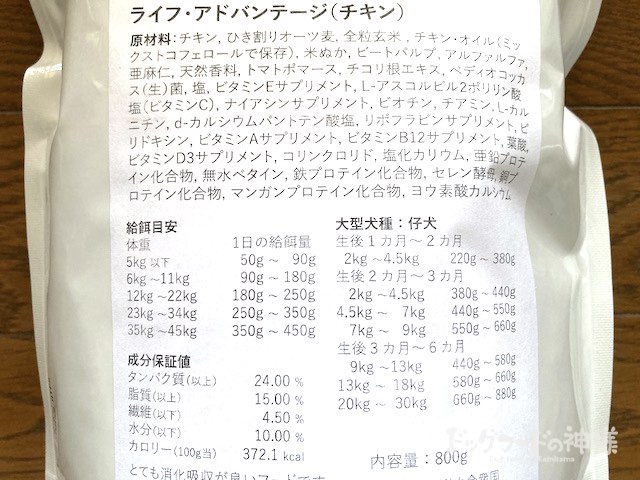 ライフ・アドバンテージ(チキン)
原材料:チキン, ひき割りオーツ麦, 全粒玄米, チキン・オイル(ミッ
クストコフェロールで保存), 米ぬか, ビートパルプ, アルファルファ,
亜麻仁, 天然香料, トマトポマース, チコリ根エキス, ペディオコッカ
ス(生)菌, 塩, ビタミンEサプリメント, L-アスコルビル2ポリリン酸
塩(ビタミンC), ナイアシンサプリメント, ビオチン, チアミン, L-カル
ニチン, d-カルシウムパントテン酸塩, リボフラビンサプリメント, ピ
リドキシン, ビタミンAサプリメント, ビタミンB12サプリメント, 葉酸,
ビタミンD3サプリメント, コリンクロリド, 塩化カリウム, 亜鉛プロテ
イン化合物, 無水ベタイン, 鉄プロテイン化合物, セレン酵母, 銅プ
ロテイン化合物, マンガンプロテイン化合物, ヨウ素酸カルシウム
給餌目安
体重 1日の給餌量
5kg 以下 50g ~ 90g
6kg ~11kg 90g ~ 180g
12kg ~22kg 180g ~ 250g
23kg ~34kg 250g ~ 350g
35kg ~45kg 350g ~ 450g
成分保証値
タンパク質(以上) 24.00 %
脂質(以上) 15.00 %
繊維(以下) 4.50 %
水分(以下) 10.00 %
カロリー(100g当) 372.1 kcal
とても消化吸収が良いフードです
大型犬種:仔犬
生後1カ月~2カ月
2kg ~4.5kg 220g ~ 380g
生後2カ月~3カ月
2kg ~4.5kg 380g ~ 440g
4.5kg ~ 7kg 440g ~ 550g
7kg ~ 9kg 550g ~ 660g
生後3カ月~6カ月
9kg ~13kg 440g ~ 580g
13kg ~ 18kg 580g ~ 660g
20kg ~ 30kg 660g ~ 880g
内容量:800g
ドッグフードの神様